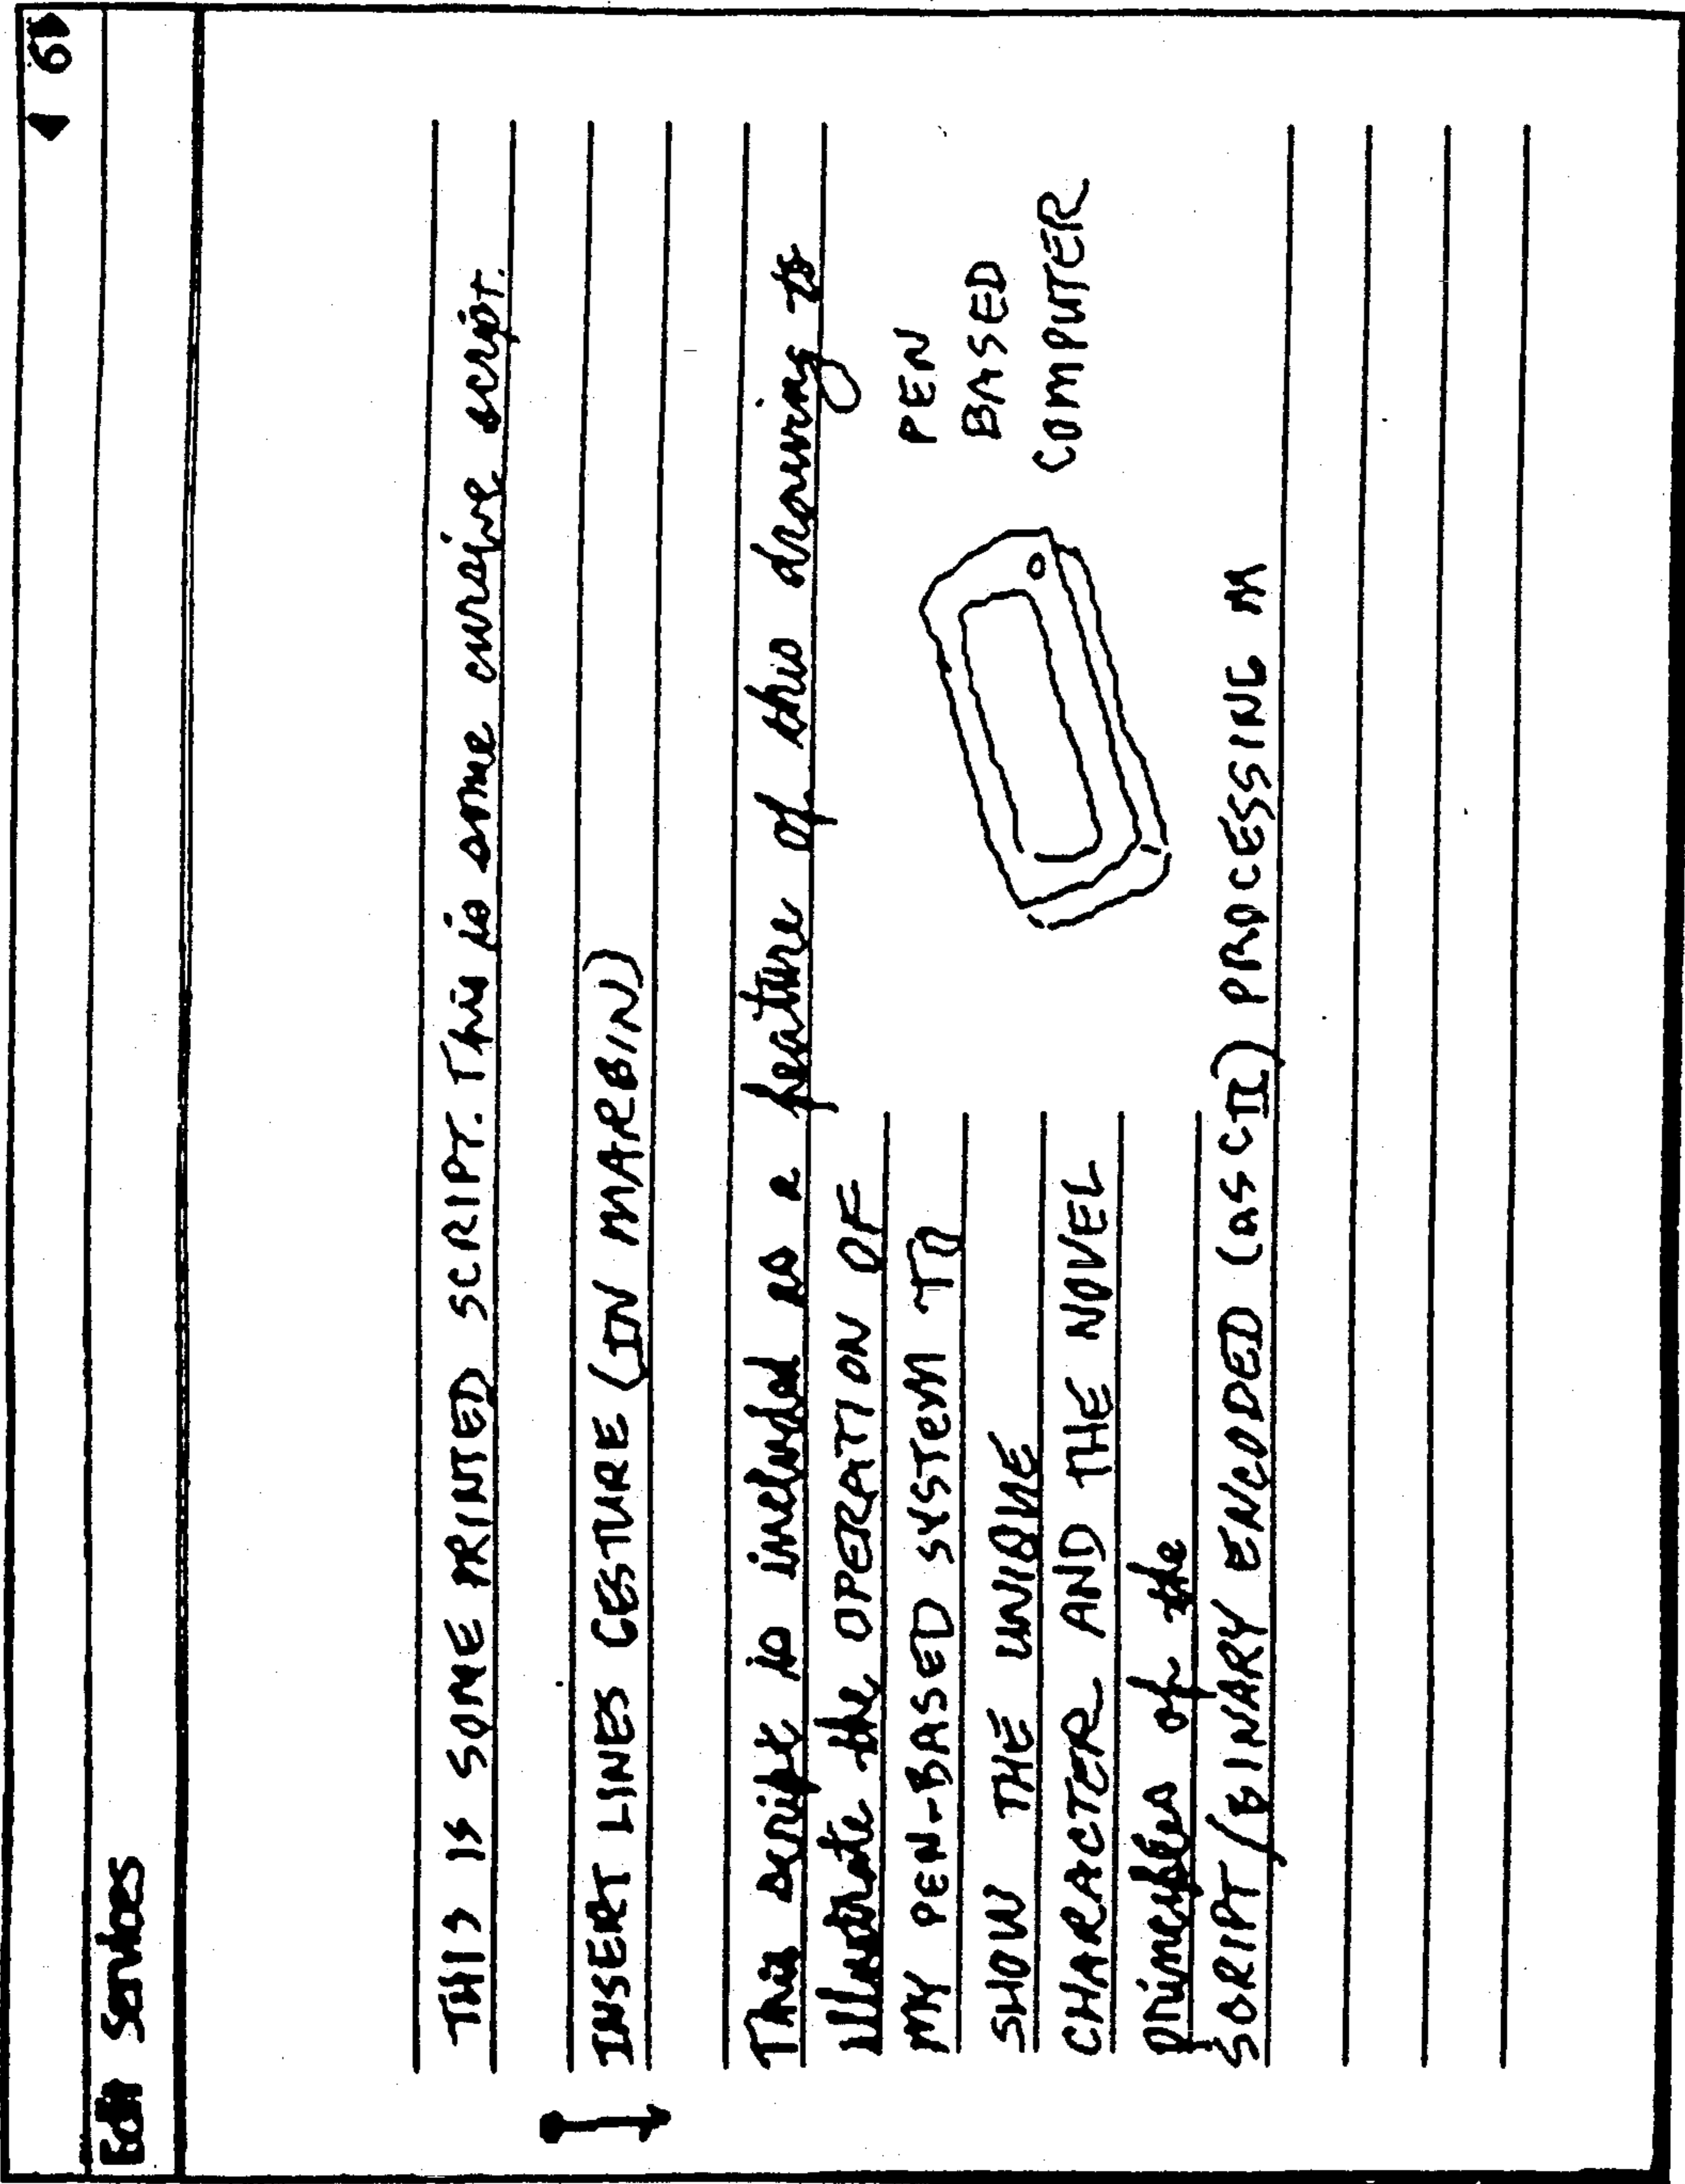 ◀ 6 ▶
Edit Services
THIS IS SOME PRINTED SCRIPT. This is some cursive script.
INSERT LINES GESTURE (IN MARBIN)
This script is included as a feature of this drawing to
illustrate the OPERATION OF
MY PEN-BASED SYSTEM TO
SHOW THE UNIQUE
CHARACTER AND THE NOVEL
principles of the
SCRIPT/BINARY ENCODED (ASCII) PROCESSING M
PEN
BASED
COMPUTER